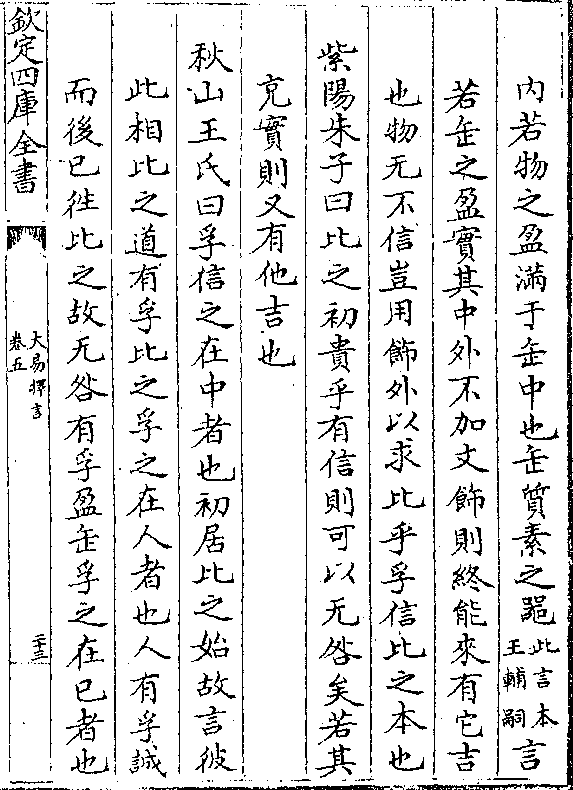 内若物之盈滿于缶中也缶質素之噐此言本王輔嗣言
若缶之盈實其中外不加文飾則終能來有它吉
也物无不信豈用飾外以求比乎孚信比之本也
紫陽朱子曰比之初貴乎有信則可以无咎矣若其
充實則又有他吉也
秋山王氏曰孚信之在中者也初居比之始故言彼
此相比之道有孚比之孚之在人者也人有孚誠
而後已徃比之故无咎有孚盈缶孚之在已者也
欽定四庫全書
大易擇言
卷五
二十三